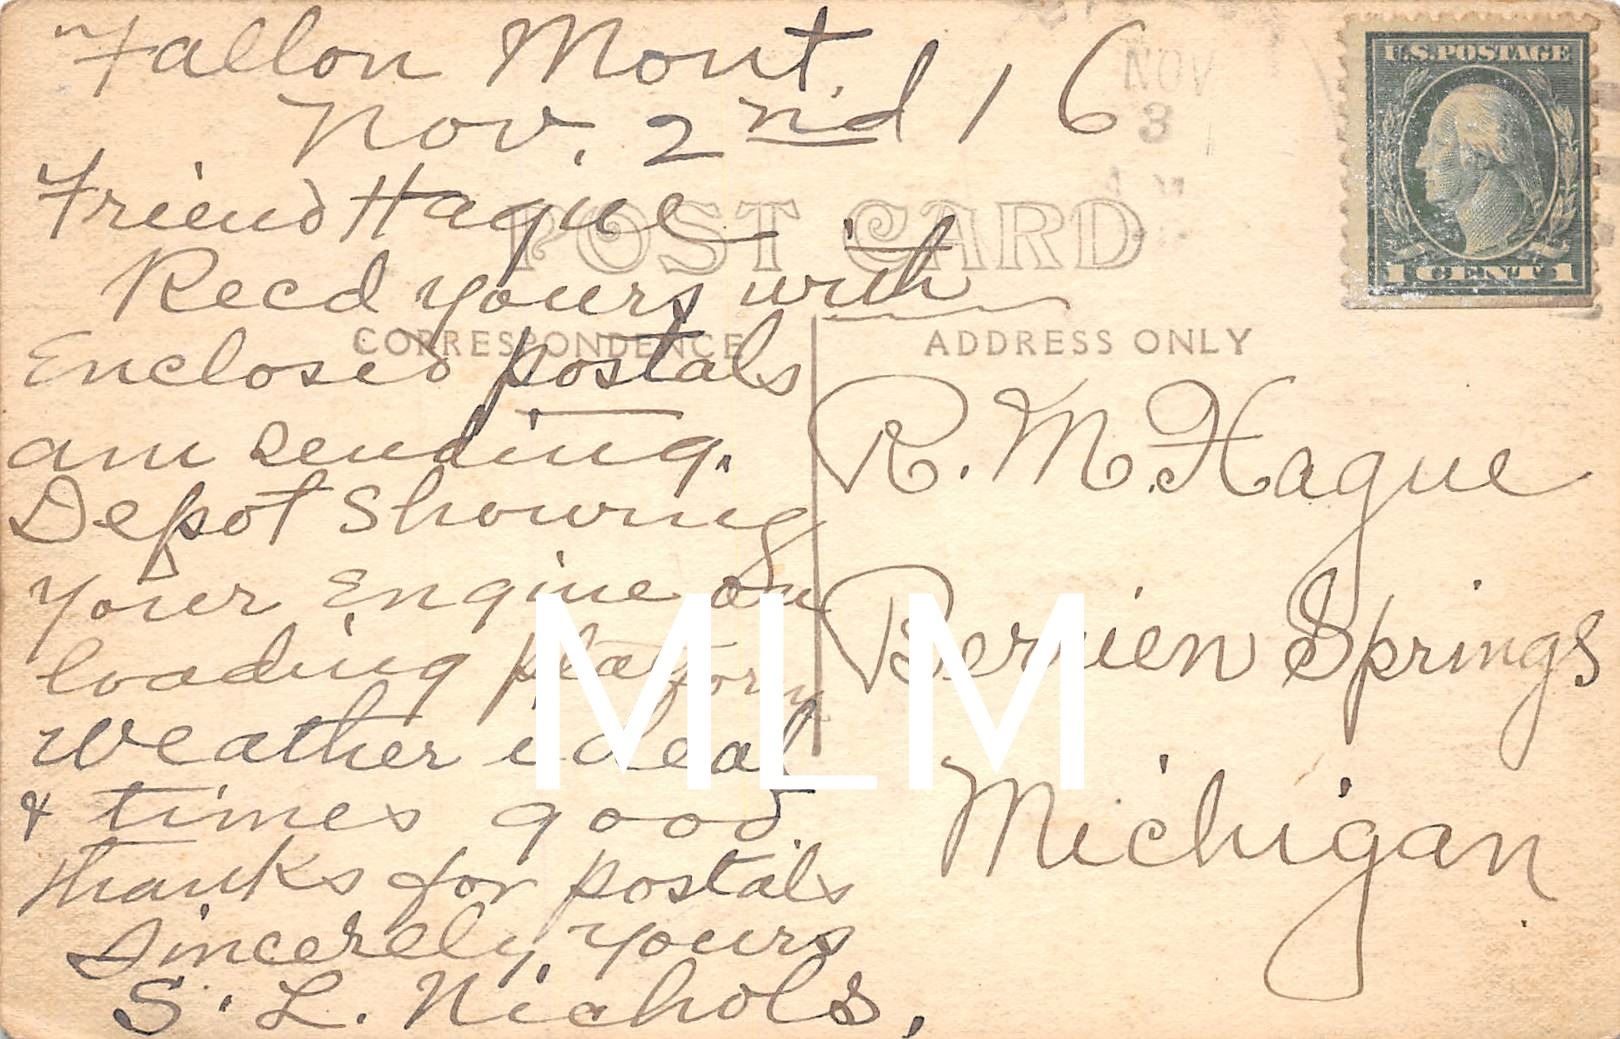 Fallon Mont.
Nov. 2nd 16
Friend Hague
Recd yours with
Enclosed postals
am sending.
Depot Showing
your Engine on
loading platform
weather ideal
& times good.
thanks for postals
Sincerely yours
S. L. Nichols,
POST CARD
CORRESPONDENCE
ADDRESS ONLY
NOV
3
U.S. POSTAGE
1 CENT 1
R. M. Hague
Berrien Springs
Michigan
MLM